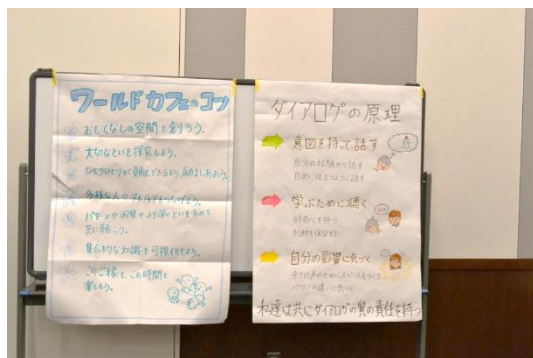 ワールドカフェのコツ
おもてなしの空間を創ろう。
大切なといを探究しよう。
ひとりひとりが貢献できるよう、励ましあおう。
多様な人やアイデアをつなげよう。
パターンや洞察やより深いといを求めて
共に聴こう。
集合的な知識を可視化しよう。
この時間を
楽しもう。
ダイアログの原理
意図を持って話す
自分の経験から話す
目的に役立つように話す
学ぶために聴く
好奇心を持つ
判断を保留
自分の影響に気づく
気づく
私達は共にダイアログの質の責任を持つ